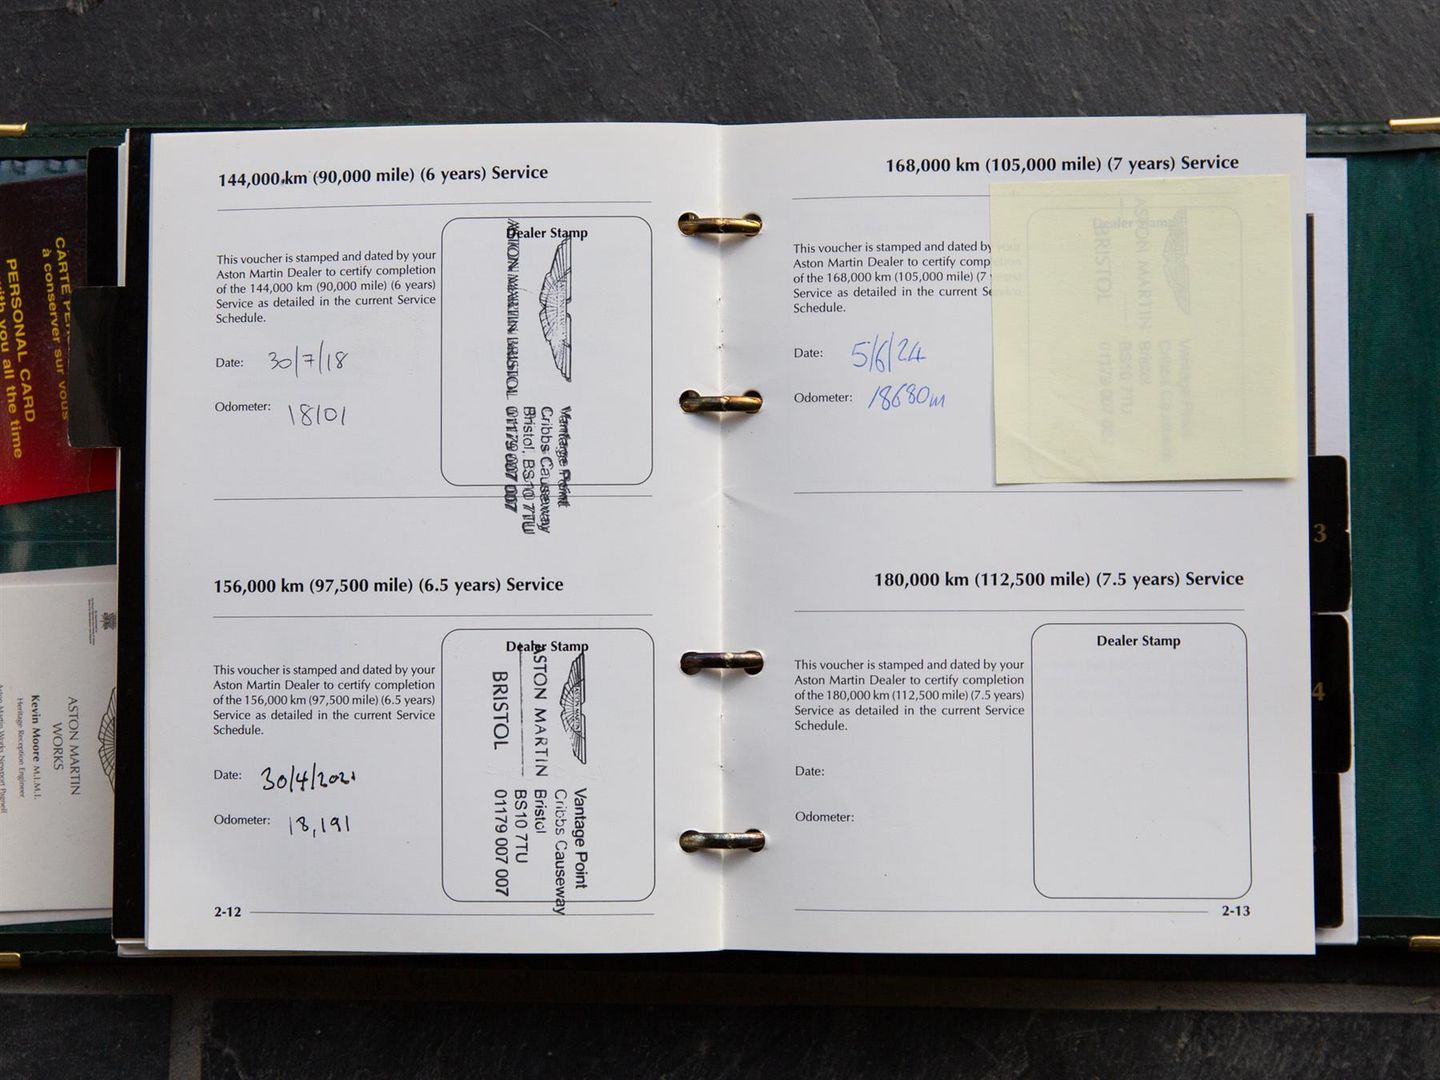 144,000 km (90,000 mile) (6 years) Service
This voucher is stamped and dated by your
Aston Martin Dealer to certify completion
of the 144,000 km (90,000 mile) (6 years)
Service as detailed in the current Service
Schedule.
Date: 30/7/18
Odometer: 18101
Dealer Stamp
ASTON MARTIN BRISTOL
Vantage Point
Cribbs Causeway
Bristol, BS10 7TU
01179 007 007
156,000 km (97,500 mile) (6.5 years) Service
This voucher is stamped and dated by your
Aston Martin Dealer to certify completion
of the 156,000 km (97,500 mile) (6.5 years)
Service as detailed in the current Service
Schedule.
Date: 30/4/2021
Odometer: 18,191
Dealer Stamp
ASTON MARTIN
BRISTOL
Vantage Point
Cribbs Causeway
Bristol
BS10 7TU
01179 007 007
2-12
168,000 km (105,000 mile) (7 years) Service
This voucher is stamped and dated by your
Aston Martin Dealer to certify completion
of the 168,000 km (105,000 mile) (7 years)
Service as detailed in the current Service
Schedule.
Date: 5/6/24
Odometer: 18680m
Dealer Stamp
ASTON MARTIN
BRISTOL
Vantage Point
Cribbs Causeway
Bristol
BS10 7TU
01179 007 007
180,000 km (112,500 mile) (7.5 years) Service
This voucher is stamped and dated by your
Aston Martin Dealer to certify completion
of the 180,000 km (112,500 mile) (7.5 years)
Service as detailed in the current Service
Schedule.
Date:
Odometer:
Dealer Stamp
2-13
3
4
CARTE
à conserver sur vous
PERSONAL CARD
with you all the time
ASTON MARTIN
WORKS
Kevin Moore M.I.M.I.
Heritage Reception Engineer
Aston Martin Works Newport Pagnell